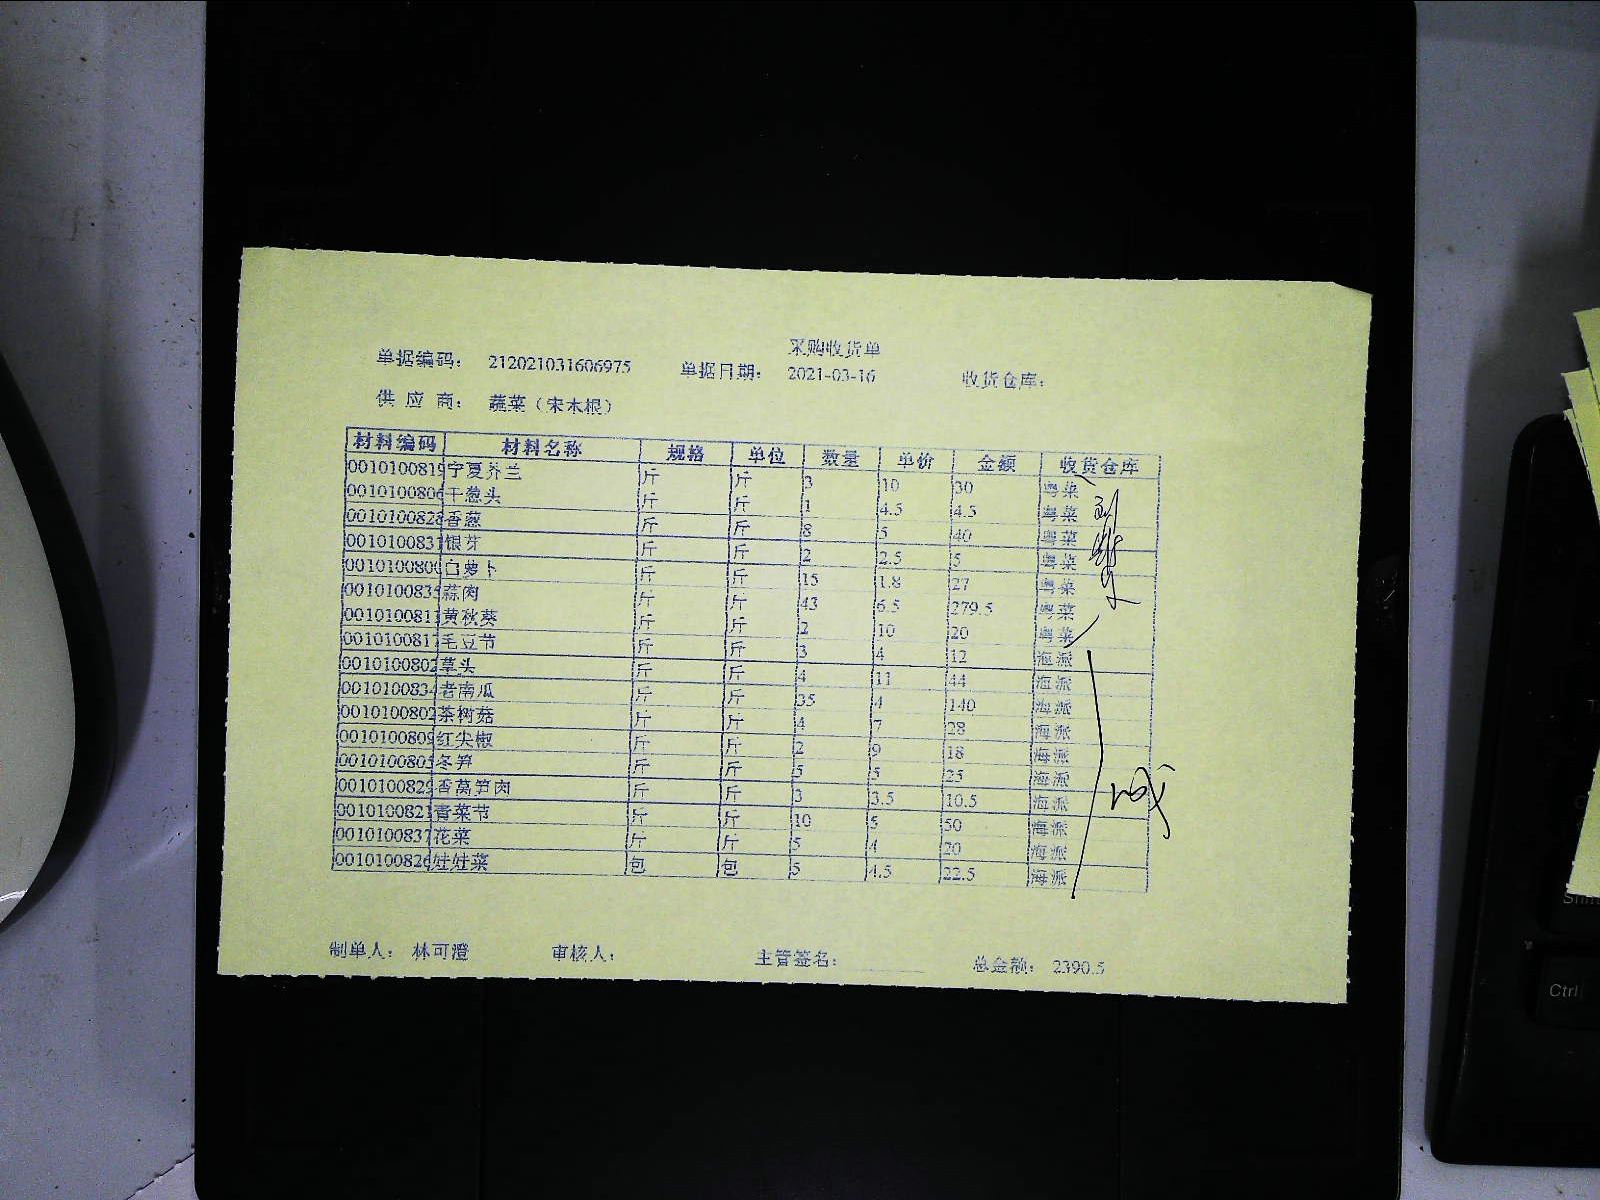 采购收货单
单据编码： 212021031606975 单据日期： 2021-03-16 收货仓库：
供 应 商： 蔬菜（宋木根）
材料编码 材料名称 规格 单位 数量 单价 金额 收货仓库
0010100819 宁夏芥兰 斤 斤 3 10 30 粤菜
0010100806 干葱头 斤 斤 1 4.5 4.5 粤菜
0010100828 香葱 斤 斤 8 5 40 粤菜
0010100831 银芽 斤 斤 2 2.5 5 粤菜
0010100800 白萝卜 斤 斤 15 1.8 27 粤菜
0010100835 蒜肉 斤 斤 43 6.5 279.5 粤菜
0010100811 黄秋葵 斤 斤 2 10 20 粤菜
0010100817 毛豆节 斤 斤 3 4 12 海派
0010100802 草头 斤 斤 4 11 44 海派
0010100834 老南瓜 斤 斤 35 4 140 海派
0010100802 茶树菇 斤 斤 4 7 28 海派
0010100809 红尖椒 斤 斤 2 9 18 海派
0010100805 冬笋 斤 斤 5 5 25 海派
0010100829 香莴笋肉 斤 斤 3 3.5 10.5 海派
0010100821 青菜节 斤 斤 10 5 50 海派
0010100837 花菜 斤 斤 5 4 20 海派
0010100826 娃娃菜 包 包 5 4.5 22.5 海派
制单人： 林可澄 审核人： 主管签名： 总金额： 2390.5
Ctrl